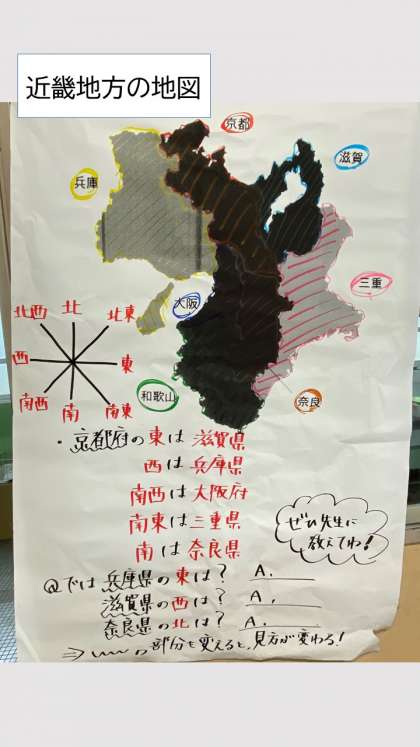 近畿地方の地図
京都
滋賀
兵庫
三重
大阪
和歌山
奈良
北西 北 北東
西 東
南西 南 南東
・京都府の東は滋賀県
西は兵庫県
南西は大阪府
南東は三重県
南は奈良県
ぜひ先生に
教えてね!
@では兵庫県の東は? A.
滋賀県の西は? A.
奈良県の北は? A.
⇒〰の部分を変えると、見方が変わる!